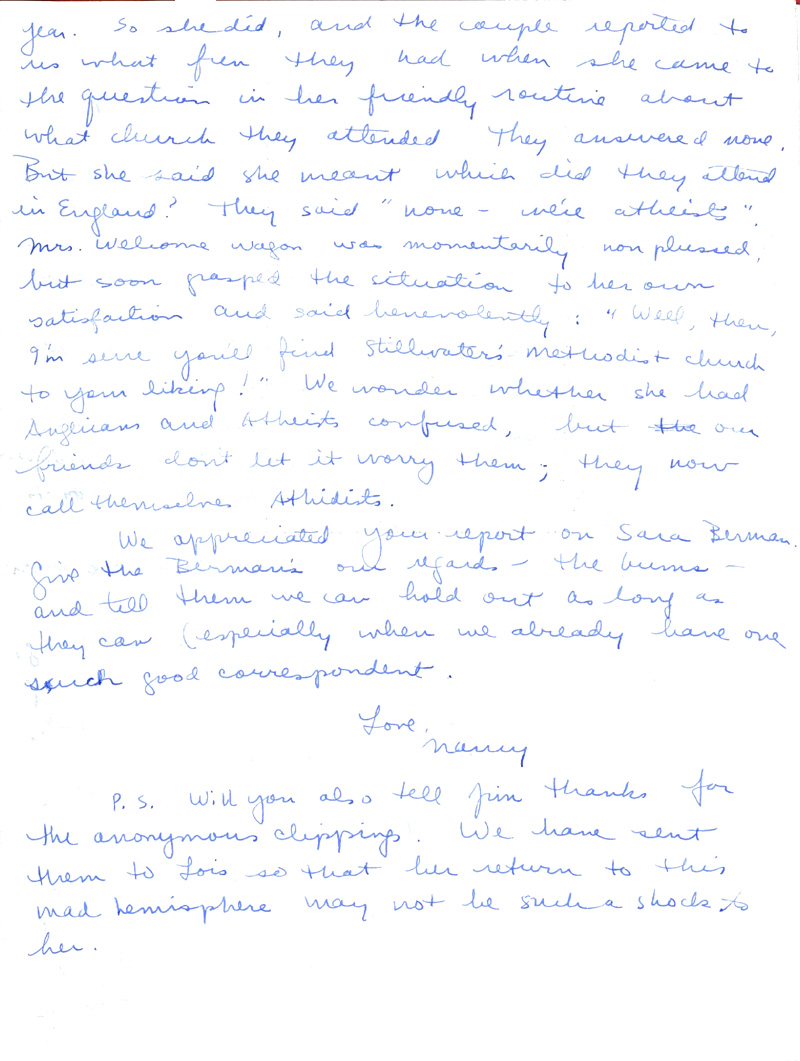 year. So she did, and the couple reported to
us what fun they had when she came to
the question in her friendly routine about
what church they attended They answered none.
But she said she meant which did they attend
in England? They said "none – we're atheists".
Mrs. Welcome Wagon was momentarily non plussed,
but soon grasped the situation to her own
satisfaction and said benevolently: "Well, then,
I'm sure you'll find Stillwater's Methodist church
to your liking!" We wonder whether she had
Anglicans and Atheists confused, but the our
friends don't let it worry them; they now
call themselves Athidists.
We appreciated your report on Sara Berman.
Give the Berman's our regards – the bums –
and tell them we can hold out as long as
they can (especially when we already have one
such good correspondent.
Love,
Nancy
P.S. Will you also tell Jim thanks for
the anonymous clippings. We have sent
them to Lois so that her return to this
mad hemisphere may not be such a shock to
her.